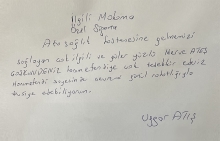 İlgili Makama
Özel Sigorta
Ata sağlık hastanesine gelmemizi
sağlayan çok ilgili ve güler yüzlü Merve ATEŞ
hanımefendiye çok teşekkür ederiz
Hanımefendi sayesinde
tavsiye edebiliyorum.
Uğur Atış